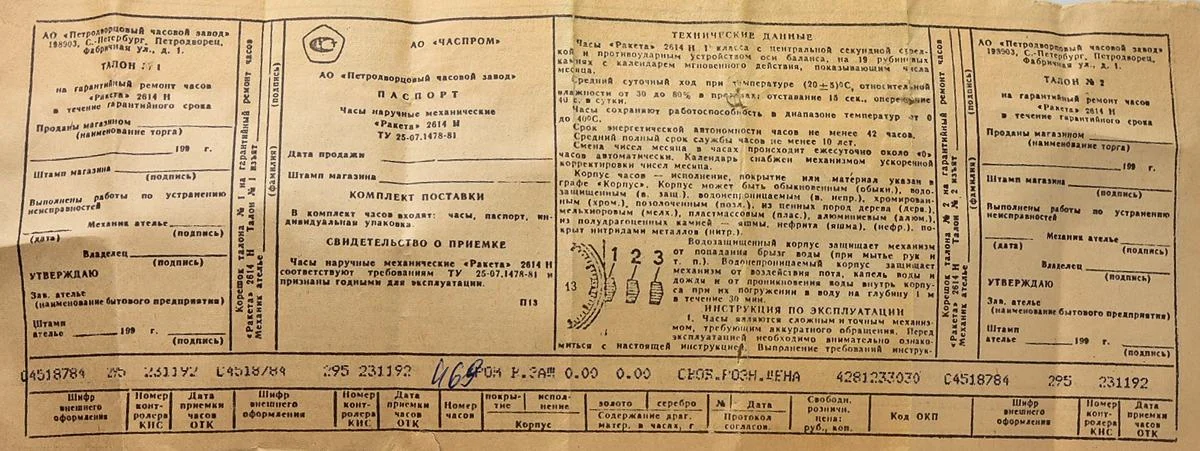 АО «Петродворцовый часовой завод»
198903, С.-Петербург, Петродворец,
Фабричная ул., д. 1.
ТАЛОН № 1
на гарантийный ремонт часов
«Ракета» 2614 Н
в течение гарантийного срока
Проданы магазином
(наименование торга)
199 г.
Штамп магазина
(подпись)
Выполнены работы по устранению
неисправностей
Механик ателье
(дата) (подпись)
Владелец
(подпись)
УТВЕРЖДАЮ
Зав. ателье
(наименование бытового предприятия)
Штамп
ателье 199 г.
(подпись)
Корешок талона № 1 на гарантийный ремонт часов
«Ракета» 2614 Н Талон № 1 изъят
Механик ателье
(фамилия) (подпись)
АО «ЧАСПРОМ»
АО «Петродворцовый часовой завод»
ПАСПОРТ
Часы наручные механические
«Ракета» 2614 Н
ТУ 25-07.1478-81
Дата продажи
Штамп магазина
КОМПЛЕКТ ПОСТАВКИ
В комплект часов входят: часы, паспорт, ин-
дивидуальная упаковка.
СВИДЕТЕЛЬСТВО О ПРИЕМКЕ
Часы наручные механические «Ракета» 2614 Н
соответствуют требованиям ТУ 25-07.1478-81 и
признаны годными для эксплуатации.
П13
ТЕХНИЧЕСКИЕ ДАННЫЕ
Часы «Ракета» 2614 Н 1 класса с центральной секундной стрел-
кой и противоударным устройством оси баланса, на 19 рубиновых
камнях с календарем мгновенного действия, показывающим числа
месяца.
Средний суточный ход при температуре (20±5)°С, относительной
влажности от 30 до 80% в пределах: отставание 15 сек., опережение
40 с. в сутки.
Часы сохраняют работоспособность в диапазоне температур от 0
до 40°С.
Срок энергетической автономности часов не менее 42 часов.
Средний полный срок службы часов не менее 10 лет.
Смена чисел месяца в часах происходит ежесуточно около «0»
часов автоматически. Календарь снабжен механизмом ускоренной
корректировки чисел месяца.
Корпус часов — исполнение, покрытие или материал указан в
графе «Корпус». Корпус может быть обыкновенным (обыкн.), водо-
защищенным (в. защ.), водонепроницаемым (в. непр.), хромирован-
ным (хром.), позолоченным (позл.), из ценных пород дерева (дерв.),
мельхиоровым (мелх.), пластмассовым (плас.), алюминиевым (алюм.),
из полудрагоценных камней — яшмы, нефрита (яшма), (нефр.), по-
крыт нитридами металлов (нитр.).
Водозащищенный корпус защищает механизм
от попадания брызг воды (при мытье рук и
т. п.). Водонепроницаемый корпус защищает
механизм от воздействия пота, капель воды и
дождя и от проникновения воды внутрь корпу-
са при их погружении в воду на глубину 1 м
в течение 30 мин.
13 1 2 3
ИНСТРУКЦИЯ ПО ЭКСПЛУАТАЦИИ
1. Часы являются сложным и точным механиз-
мом, требующим аккуратного обращения. Перед
эксплуатацией необходимо внимательно ознако-
миться с настоящей инструкцией. Выполнение требований инструк-
Корешок талона № 2 на гарантийный ремонт часов
«Ракета» 2614 Н Талон № 2 изъят
Механик ателье
(фамилия) (подпись)
АО «Петродворцовый часовой завод»
198903, С.-Петербург, Петродворец,
Фабричная ул., д. 1.
ТАЛОН № 2
на гарантийный ремонт часов
«Ракета» 2614 Н
в течение гарантийного срока
Проданы магазином
(наименование торга)
199 г.
Штамп магазина
(подпись)
Выполнены работы по устранению
неисправностей
Механик ателье
(дата) (подпись)
Владелец
(подпись)
УТВЕРЖДАЮ
Зав. ателье
(наименование бытового предприятия)
Штамп
ателье 199 г.
(подпись)
04518784 295 231192 04518784 295 231192 469 ХРОМ В.ЗАЩ 0.00 0.00 СВОБ.РОЗН.ЦЕНА 4281233030 04518784 295 231192
Шифр внешнего оформления
Номер контролера КИС
Дата приемки часов ОТК
Шифр внешнего оформления
Номер контролера КИС
Дата приемки часов ОТК
Номер часов
покрытие исполнение
Корпус
золото серебро
Содержание драг. матер. в часах, г
№ Дата
Протокол согласов.
Свободн. рознич. цена: руб., коп.
Код ОКП
Шифр внешнего оформления
Номер контролера КИС
Дата приемки часов ОТК